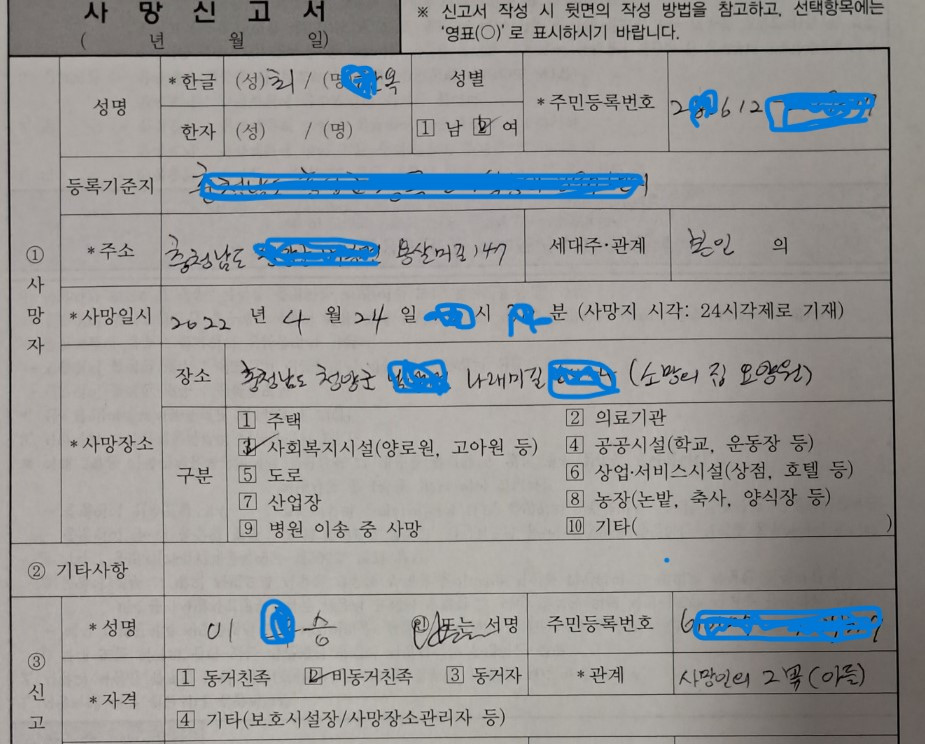 사 망 신 고 서
( 년 월 일)
※ 신고서 작성 시 뒷면의 작성 방법을 참고하고, 선택항목에는
'영표(○)'로 표시하시기 바랍니다.
① 사망자
성명
*한글 (성) 최 / (명) 옥
한자 (성) / (명)
성별
1 남 2 여
*주민등록번호
612
등록기준지
*주소 충청남도 용살미로 147
세대주·관계 본인 의
*사망일시 2022 년 4 월 24 일 시 분 (사망지 시각: 24시각제로 기재)
*사망장소
장소 충청남도 청양군 나래미길 (소망의 집 요양원)
구분
1 주택 2 의료기관
3 사회복지시설(양로원, 고아원 등) 4 공공시설(학교, 운동장 등)
5 도로 6 상업·서비스시설(상점, 호텔 등)
7 산업장 8 농장(논밭, 축사, 양식장 등)
9 병원 이송 중 사망 10 기타( )
② 기타사항
③ 신고
*성명 이 승 또는 서명 주민등록번호 6
*자격
1 동거친족 2 비동거친족 3 동거자 *관계 사망인의 2남(아들)
4 기타(보호시설장/사망장소관리자 등)